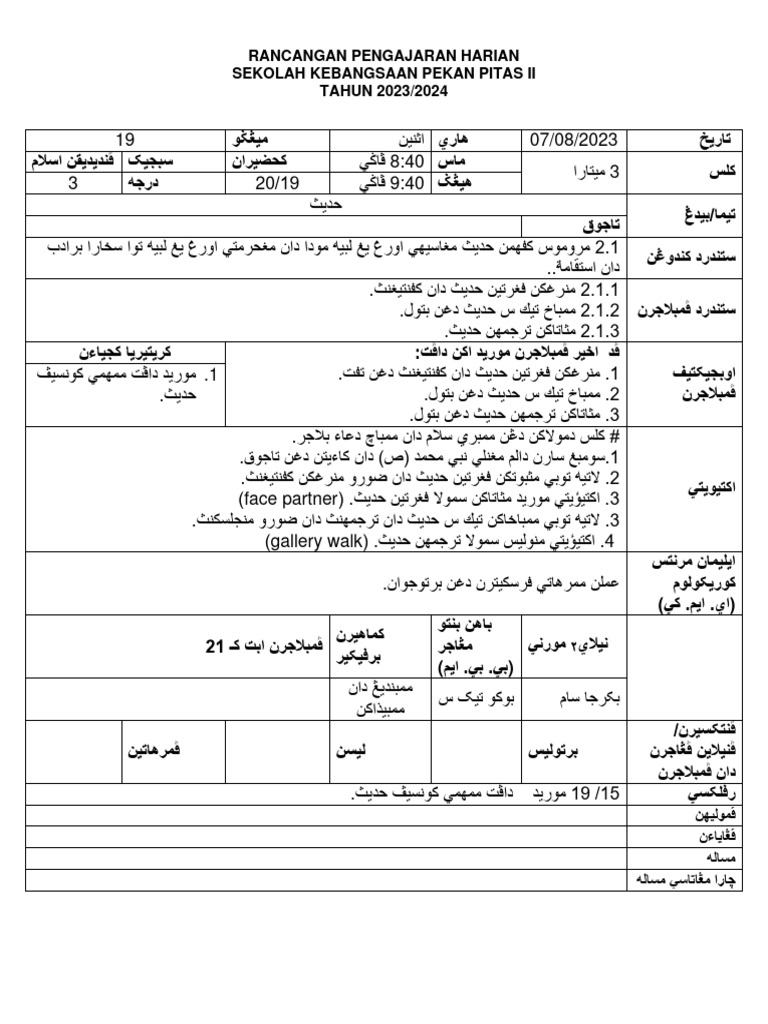 RANCANGAN PENGAJARAN HARIAN
SEKOLAH KEBANGSAAN PEKAN PITAS II
TAHUN 2023/2024
تاريخ 07/08/2023 هاري اثنين ميڠݢو 19
كلس 3 ميتارا ماس 8:40 ڤاݢي كحضيران سبجيک ڤنديديقن اسلام
هيڠݢ 9:40 ڤاݢي 20/19 درجه 3
تيما/بيدڠ حديث
تاجوق
ستندرد كندوڠن 2.1 مروموس كفهمن حديث مغاسيهي اورڠ يڠ لبيه مودا دان مڠحرمتي اورڠ يڠ لبيه توا سخارا برادب
دان استقامة..
ستندرد ڤمبلاجرن 2.1.1 منرڠكن ڤڠرتين حديث دان كڤنتيڠنث.
2.1.2 ممباخ تيك س حديث دڠن بتول.
2.1.3 مثاتاكن ترجمهن حديث.
اوبجيكتيف ڤمبلاجرن ڤد اخير ڤمبلاجرن موريد اكن داڤت: كريتيريا كجياءن
1. منرڠكن ڤڠرتين حديث دان كڤنتيڠنث دڠن تڤت. 1. موريد داڤت ممهمي كونسيڤ
2. ممباخ تيك س حديث دڠن بتول. حديث.
3. مثاتاكن ترجمهن حديث دڠن بتول.
اكتيويتي # كلس دمولاكن دڠن ممبري سلام دان ممباچ دعاء بلاجر.
1.سومبڠ سارن دالم مڠنلي نبي محمد (ص) دان كاءيتن دڠن تاجوق.
2. لاتيه توبي مثبوتكن ڤڠرتين حديث دان ضورو منرڠكن كڤنتيڠنث.
3. اكتيؤيتي موريد مثاتاكن سمولا ڤڠرتين حديث. (face partner)
3. لاتيه توبي ممباخاكن تيك س حديث دان ترجمهنث دان ضورو منجلسكنث.
4. اكتيؤيتي منوليس سمولا ترجمهن حديث. (gallery walk)
ايليمان مرنتس
كوريكولوم
(اي. ايم. كي) عملن ممرهاتي ڤرسكيترن دڠن برتوجوان.
نيلاي٢ مورني باهن بنتو مڠاجر (بي. بي. ايم) كماهيرن برفيكير ڤمبلاجرن ابت كـ 21
بكرجا سام بوكو تيک س ممبنديڠ دان ممبيذاكن
ڤنتكسيرن/
ڤنيلاين ڤڠاجرن
دان ڤمبلاجرن برتوليس ليسن ڤمرهاتين
رفلكسي 19 /15 موريد داڤت ممهمي كونسيڤ حديث.
ڤموليهن
ڤڠاياءن
مساله
چارا مڠاتاسي مساله